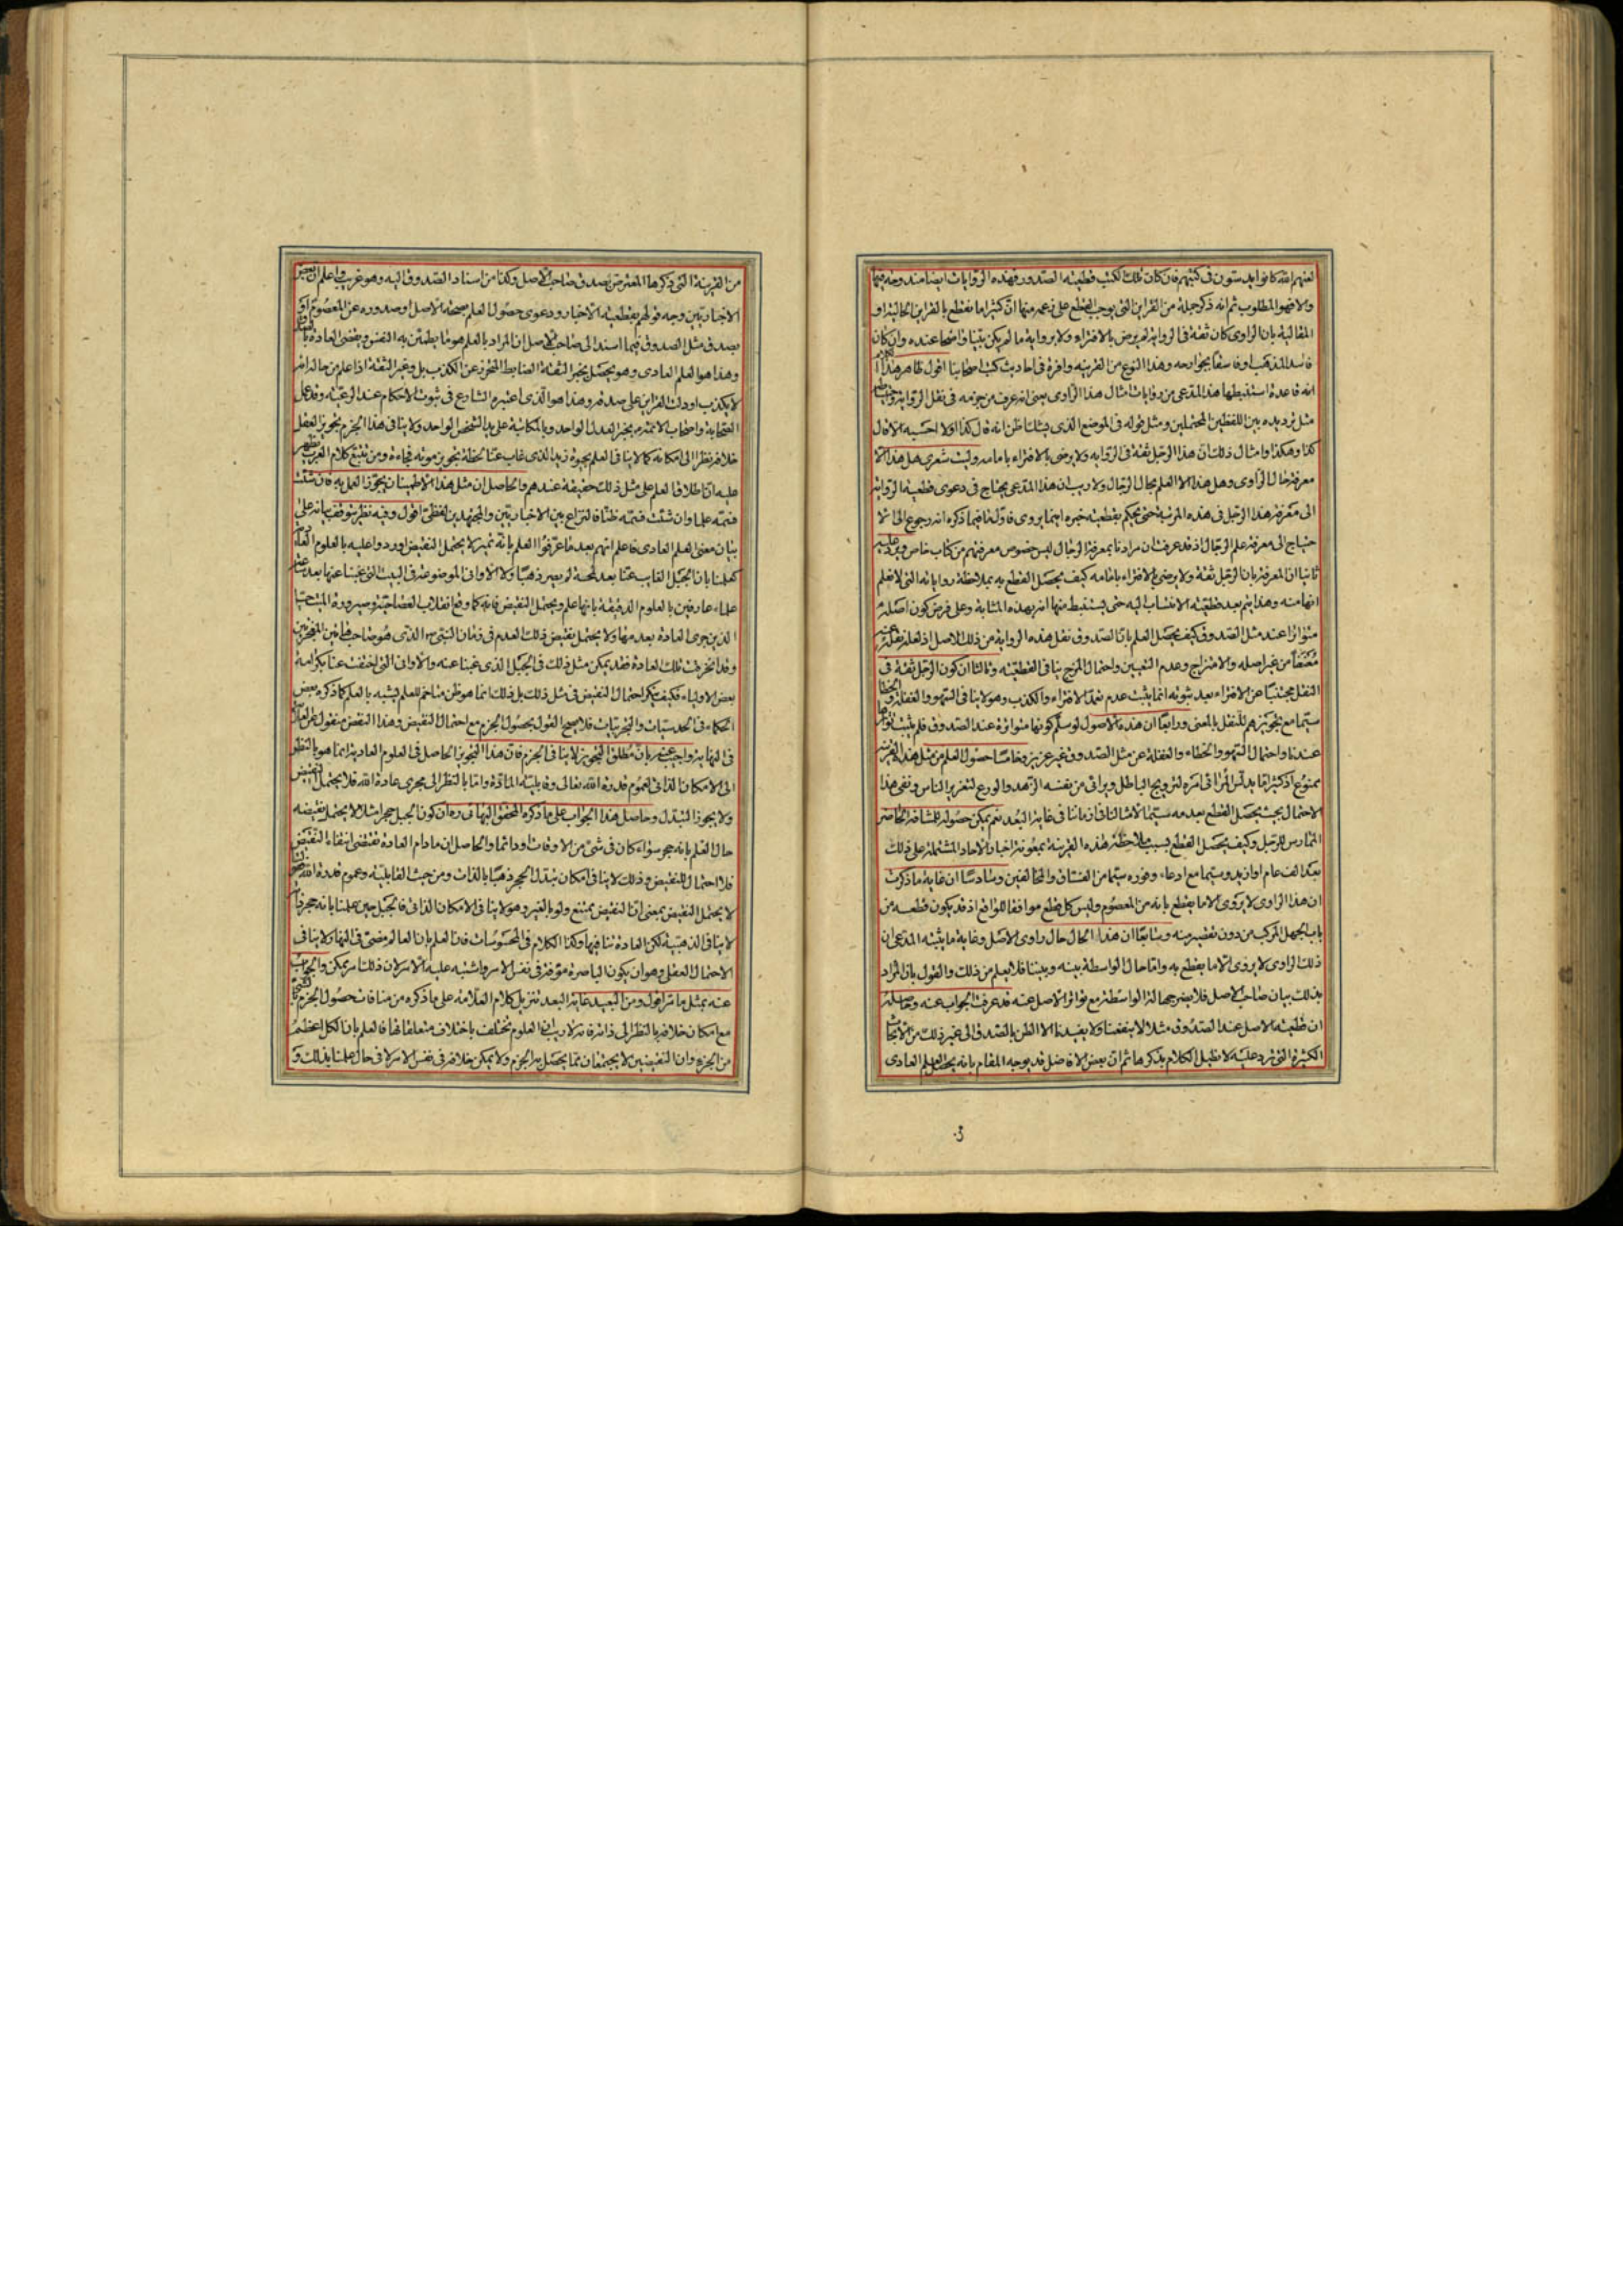 لعنهم الله كانوا يدسّون في كتبهم فان كان تلك الكتب قطعية الصدور فهذه الروايات ايضا منه وجه فيها
والا فهو المطلوب ثم انه ذكر جملة من القراين التى يوجب القطع على زعمه منها انّ كثيرا ما نقطع بالقراين الحالية او
المقالية بان الراوى كان ثقة في الرواية لم يرض بالافتراء ولا برواية ما لم يكن بيّنا واضحا عنده وان كان
فاسد المذهب او فاسقا بجوارحه وهذا النوع من القرينه وافرة في احاديث كتب اصحابنا اقول ظاهر هذا
انه قاعدة استنبطها هذا المدعى من روايات امثال هذا الراوى يعنى انه عرف من حزمه في نقل الرواية
مثل ترديده بين اللفظين المحتملين ومثل قوله في الموضع الذى يشك اظن انه قال كذا اولا احسبه الا قال
كذا وهكذا وامثال ذلك انّ هذا الرجل ثقة في الروايه ولا يرضى بالافتراء بامامه وليت شعرى هل هذا الا
معرفة حال الراوى وهل هذا الا العلم بحال الرجال ولا ريب ان هذا المدعى يحتاج في دعوى قطعية الرواية
الى معرفة هذا الرجل في هذه المرتبة حتى يحكم بقطعية خبره اينما يروى فاوّلا فيما ذكره انه رجوع الى الا
حتياج الى معرفة علم الرجال اذ قد عرفت ان مرادنا بمعرفة الرجال ليس خصوص معرفتهم من كتاب خاص ويرد عليه
ثانيا ان المعرفة بان الرجل ثقة ولا يرضى بالافتراء بامامه كيف يحصل القطع به بملاحظة رواياته التى لا نعلم
انها منه وهذا يتم بعد قطعية الانتساب اليه حتى يستنبط منها انه بهذه المثابة وعلى فرض كون اصله
متواترا عند مثل الصدوق كيف يحصل العلم بان الصدوق نقل هذه الرواية من ذلك الاصل اذ لعله نقله
معنعناً من غير اصله والامتزاج وعدم التعيين واحتمال المزج ينافى القطعيّة وثالثا ان كون الرجل ثقة في
النقل مجتنبا عن الافتراء بعد ثبوته انما يثبت عدم تعمد الافتراء والكذب وهو لا ينافى السهو والغفلة والخطا
سيّما مع تجويزهم للنقل بالمعنى ورابعا ان هذه الاصول لو سلّم كونها متواترة عند الصدوق فلم يثبت تواترها
عندنا واحتمال السهو والخطاء والغفلة عن مثل الصدوق غير عزيز وخامسًا حصول العلم من مثل هذه القرينة
ممنوع اذ كثيرا ما يدلّس المرائى امره لترويج الباطل ويرائى من نفسه الزهد والورع لتغرير الناس ونفى هذا
الاحتمال بحيث يحصل القطع بعدمه سيّما لامثالنا في ازماننا في غاية البُعد نعم يمكن حصوله للمشافه الحاضر
الممارس للرجل وكيف يحصل القطع بسبب ملاحظة هذه القرينة بمعونة اخبار الاحاد المشتملة على ذلك
بعد الف عام او ازيد وسيّما مع ادعاء وفوره سيّما من الفسّاق والمخالفين وسادسًا ان غاية ما ذكرت
ان هذا الراوى لا يروى الا ما يقطع بانه من المعصوم وليس كل قطع موافقا للواقع اذ قد يكون قطعه من
باب الجهل المركب من دون تقصير منه وسابعًا ان هذا الحال حال راوى الاصل وغاية ما يثبته المدّعى ان
ذلك الراوى لا يروى الا ما يقطع به واما حال الواسطة بينه وبيننا فلا يعلم من ذلك والقول بان المراد
بذلك بيان صاحب الاصل فلا يضر جهالة الواسطة مع تواتر الاصل عنه قد عرفت الجواب عنه وحاصله
ان قطعية الاصل عند الصدوق مثلا لا ينفعنا ولا يفيدنا الا الظن بالصدق الى غير ذلك من الابحاث
الكثيرة التى ترد عليه لا نطيل الكلام بذكرها ثم ان بعض الافاضل قد يوجه المقام بانه يحصل العلم العادى
٣٠
من القرينة التى ذكرها المعترض بصدق صاحب الاصل وكذا من اسناد الصدوق اليه وهو غريب واعلم ان بعض
الاخباريين وجه قولهم بقطعية الاخبار ودعوى حصول العلم بصحة الاصل او صدوره عن المعصوم او
بصدق مثل الصدوق فيما اسند الى صاحب الاصل ان المراد بالعلم هو ما يطمئن به النفس ويقضى العادة بالصدق
وهذا هو العلم العادى وهو يحصل بخبر الثقة الضابط المتحرز عن الكذب بل وغير الثقة اذا علم من حاله انه
لا يكذب او دلت القراين على صدقه وهذا هو الذى اعتبره الشارع في ثبوت الاحكام عند الرعية وقد عمل
الصحابة واصحاب الائمة ع بخبر العدل الواحد وبالمكاتبة على يد الشخص الواحد ولا ينافى هذا الجزم تجويز العقل
خلافه نظرا الى امكانه كما لا ينافى العلم بحيوة زيد الذى غاب عنا لحظة تجويز موته فجاءة ومن تتبع كلام العرب ظهر
عليه ان اطلاق العلم على مثل ذلك حقيقة عندهم والحاصل ان مثل هذا الاطمينان يجوّز العمل به فان شئت
فسمّه علما وان شئت فسمّه ظنّا فالنزاع بين الاخباريين والمجتهدين لفظىّ اقول وفيه نظر يتوقف بيانه على
بيان معنى العلم العادى فاعلم انهم بعد ما عرّفوا العلم بانه تمييز لا يحتمل النقيض اورد واعليه بالعلوم العادية
كعلمنا بان الجبل الغايب عنّا بعد لمحة لم يصر ذهبًا ولا الاوانى الموضوعة في البيت التى غبنا عنها بعد
علماء عارفين بالعلوم الدقيقة بانها علم ويحتمل النقيض فانه كما وقع انقلاب العصا حيّة وصيرورة الميت حيا
الذين جرى العادة بعدمها ولا يحتمل بنقيض ذلك العدم في زمان النبى ص الذى هو صاحب
وقد انخرقت تلك العادة فقد يمكن مثل ذلك في الجبل الذى غبنا عنه والاوانى التى اختفت عنا بكرامة
بعض الاولياء فكيف ينكر احتمال النقيض في مثل ذلك بل ذلك انما هو ظن متاخم للعلم يشبه بالعلم كما ذكره بعض
الحكماء في الحدسيّات والتجربيّات فلا يصح القول بحصول الجزم مع احتمال النقيض وهذا النقض منقول عن العلامة
في النهاية واجيب عنه بان مطلق التجويز لا ينافى الجزم فان هذا التجويز الحاصل في العلوم العادية انما هو بالنظر
الى الامكان الذاتى لعموم قدرة الله تعالى وقابلية المادّة واما بالنظر الى مجرى عادة الله فلا يحتمل النقيض
ولا يجوز التبدل وحاصل هذا الجواب على ما ذكره المحقق البهائى ره ان كون الجبل حجرا مثلا لا يحتمل نقيضه
حال العلم بانه حجر سواء كان في شئ من الاوقات او دائما والحاصل ان ما دام العادة تقتضى انتفاء النقيض
فلا احتمال للنقيض وذلك لا ينافى امكان تبدل الحجر ذهبًا بالذات ومن حيث القابلية وعموم قدرة الله
لا يحتمل النقيض بمعنى ان النقيض ممتنع ولو بالغير وهو لا ينافى الامكان الذاتى فالجبل حين علمنا بانه حجر
لا ينافى الذهبية لكن العادة تنافيها وكذا الكلام في المحسوسات فان العلم بان العالم مضئ في النهار لا ينافى
الاحتمال العقلى وهو ان يكون الباصرة مؤفة في نفس الامر واشتبه عليه الامر لان ذلك امر يمكن والجواب
عنه بمثل ما مر اقول ومن البعيد غاية البعد تنزيل كلام العلامة على ما ذكره من منافات حصول الجزم
مع امكان خلافه بالنظر الى ذاته فانه لا ريب ان العلوم تختلف باختلاف متعلقاتها فالعلم بان الكل اعظم
من الجزء وان النقيضين لا يجتمعان مما يحصل به الجزم ولا يمكن خلافه في نفس الامر لا في حال علمنا بذلك و